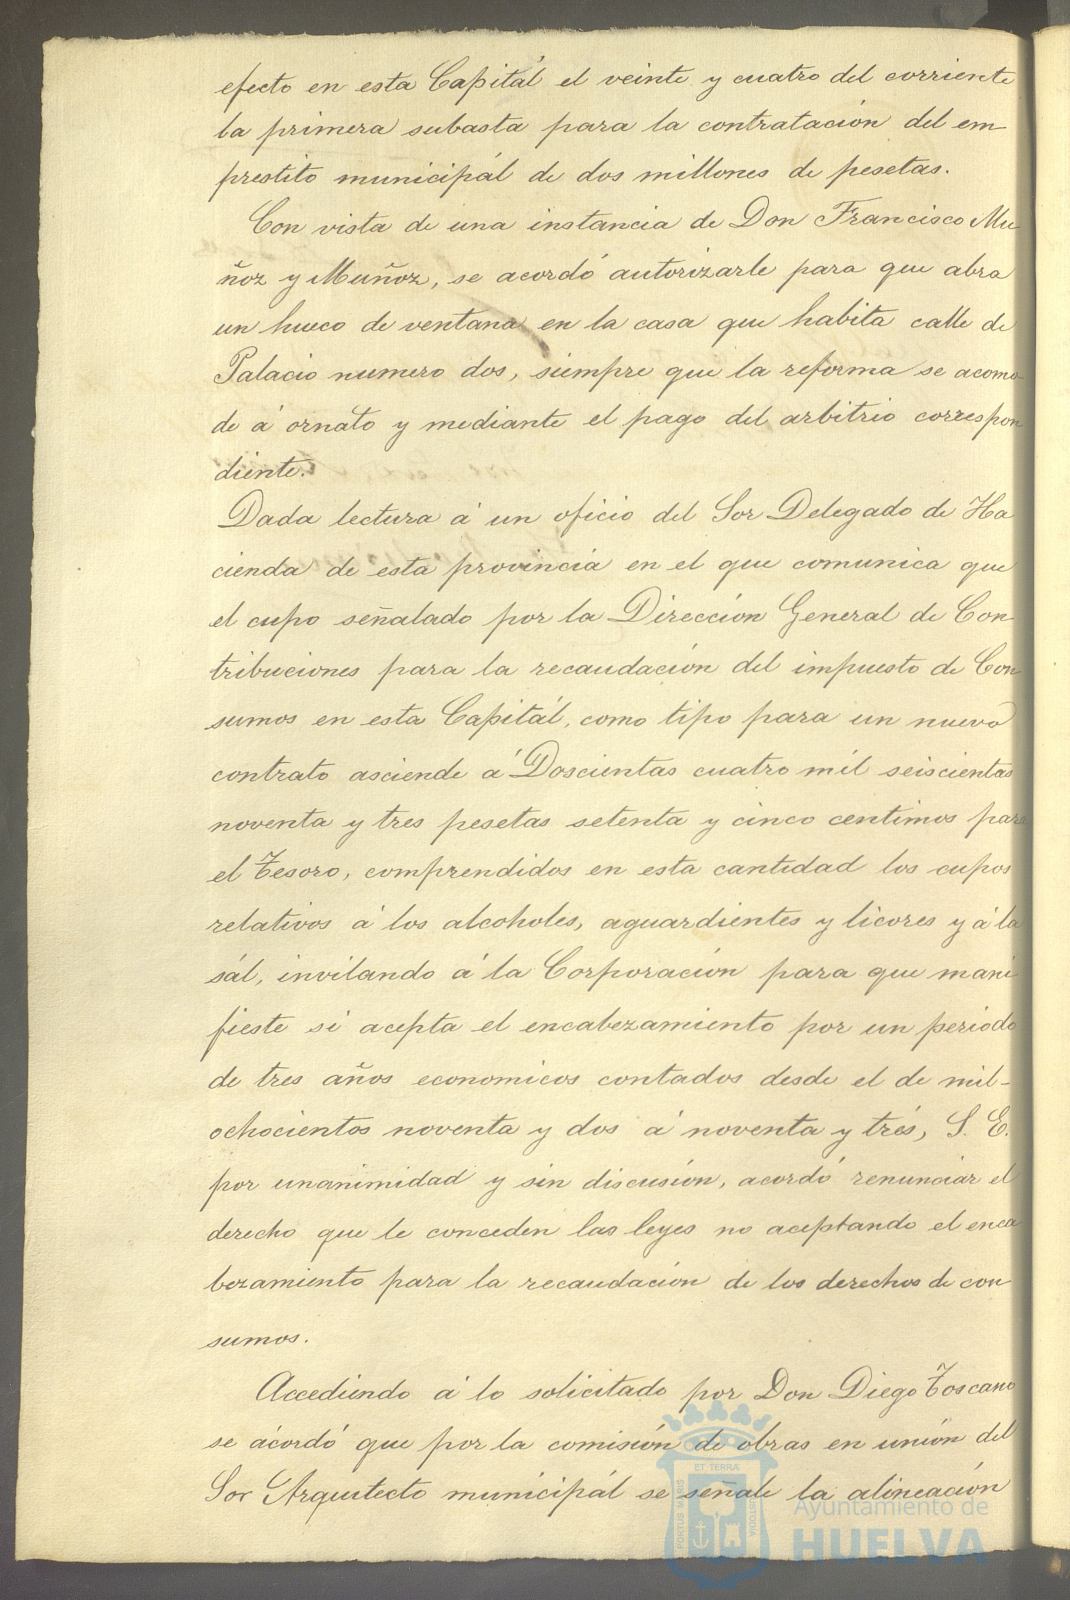 efecto en esta Capitál el veinte y cuatro del corriente
la primera subasta para la contratación del em
prestito municipál de dos millones de pesetas.
Con vista de una instancia de Don Francisco Mu
ñoz y Muñoz, se acordó autorizarle para que abra
un hueco de ventana en la casa que habita calle de
Palacio numero dos, siempre que la reforma se acomo
de á ornato y mediante el pago del arbitrio correspon
diente.
Dada lectura á un oficio del Sor Delegado de Ha
cienda de esta provincia en el que comunica que
el cupo señalado por la Dirección General de Con
tribuciones para la recaudación del impuesto de Con
sumos en esta Capitál, como tipo para un nuevo
contrato asciende á Doscientas cuatro mil seiscientas
noventa y tres pesetas setenta y cinco centimos para
el Tesoro, comprendidos en esta cantidad los cupos
relativos á los alcoholes, aguardientes y licores y á la
sál, invitando á la Corporación para que mani
fieste si acepta el encabezamiento por un periodo
de tres años economicos contados desde el de mil-
ochocientos noventa y dos á noventa y trés, S. E.
por unanimidad y sin discusión, acordó renunciar el
derecho que le conceden las leyes no aceptando el enca
bezamiento para la recaudación de los derechos de con
sumos.
Accediendo á lo solicitado por Don Diego Toscano
se ácordó que por la comisión de obras en unión del
Sor Arquitecto municipál se señale la alineación
PORTUS MARIS
ET TERRA
CUSTODIA
Ayuntamiento de
HUELVA